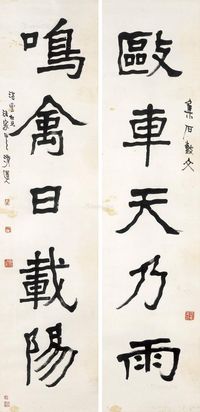 集石鼓文
敺車天乃雨
鳴禽日載陽